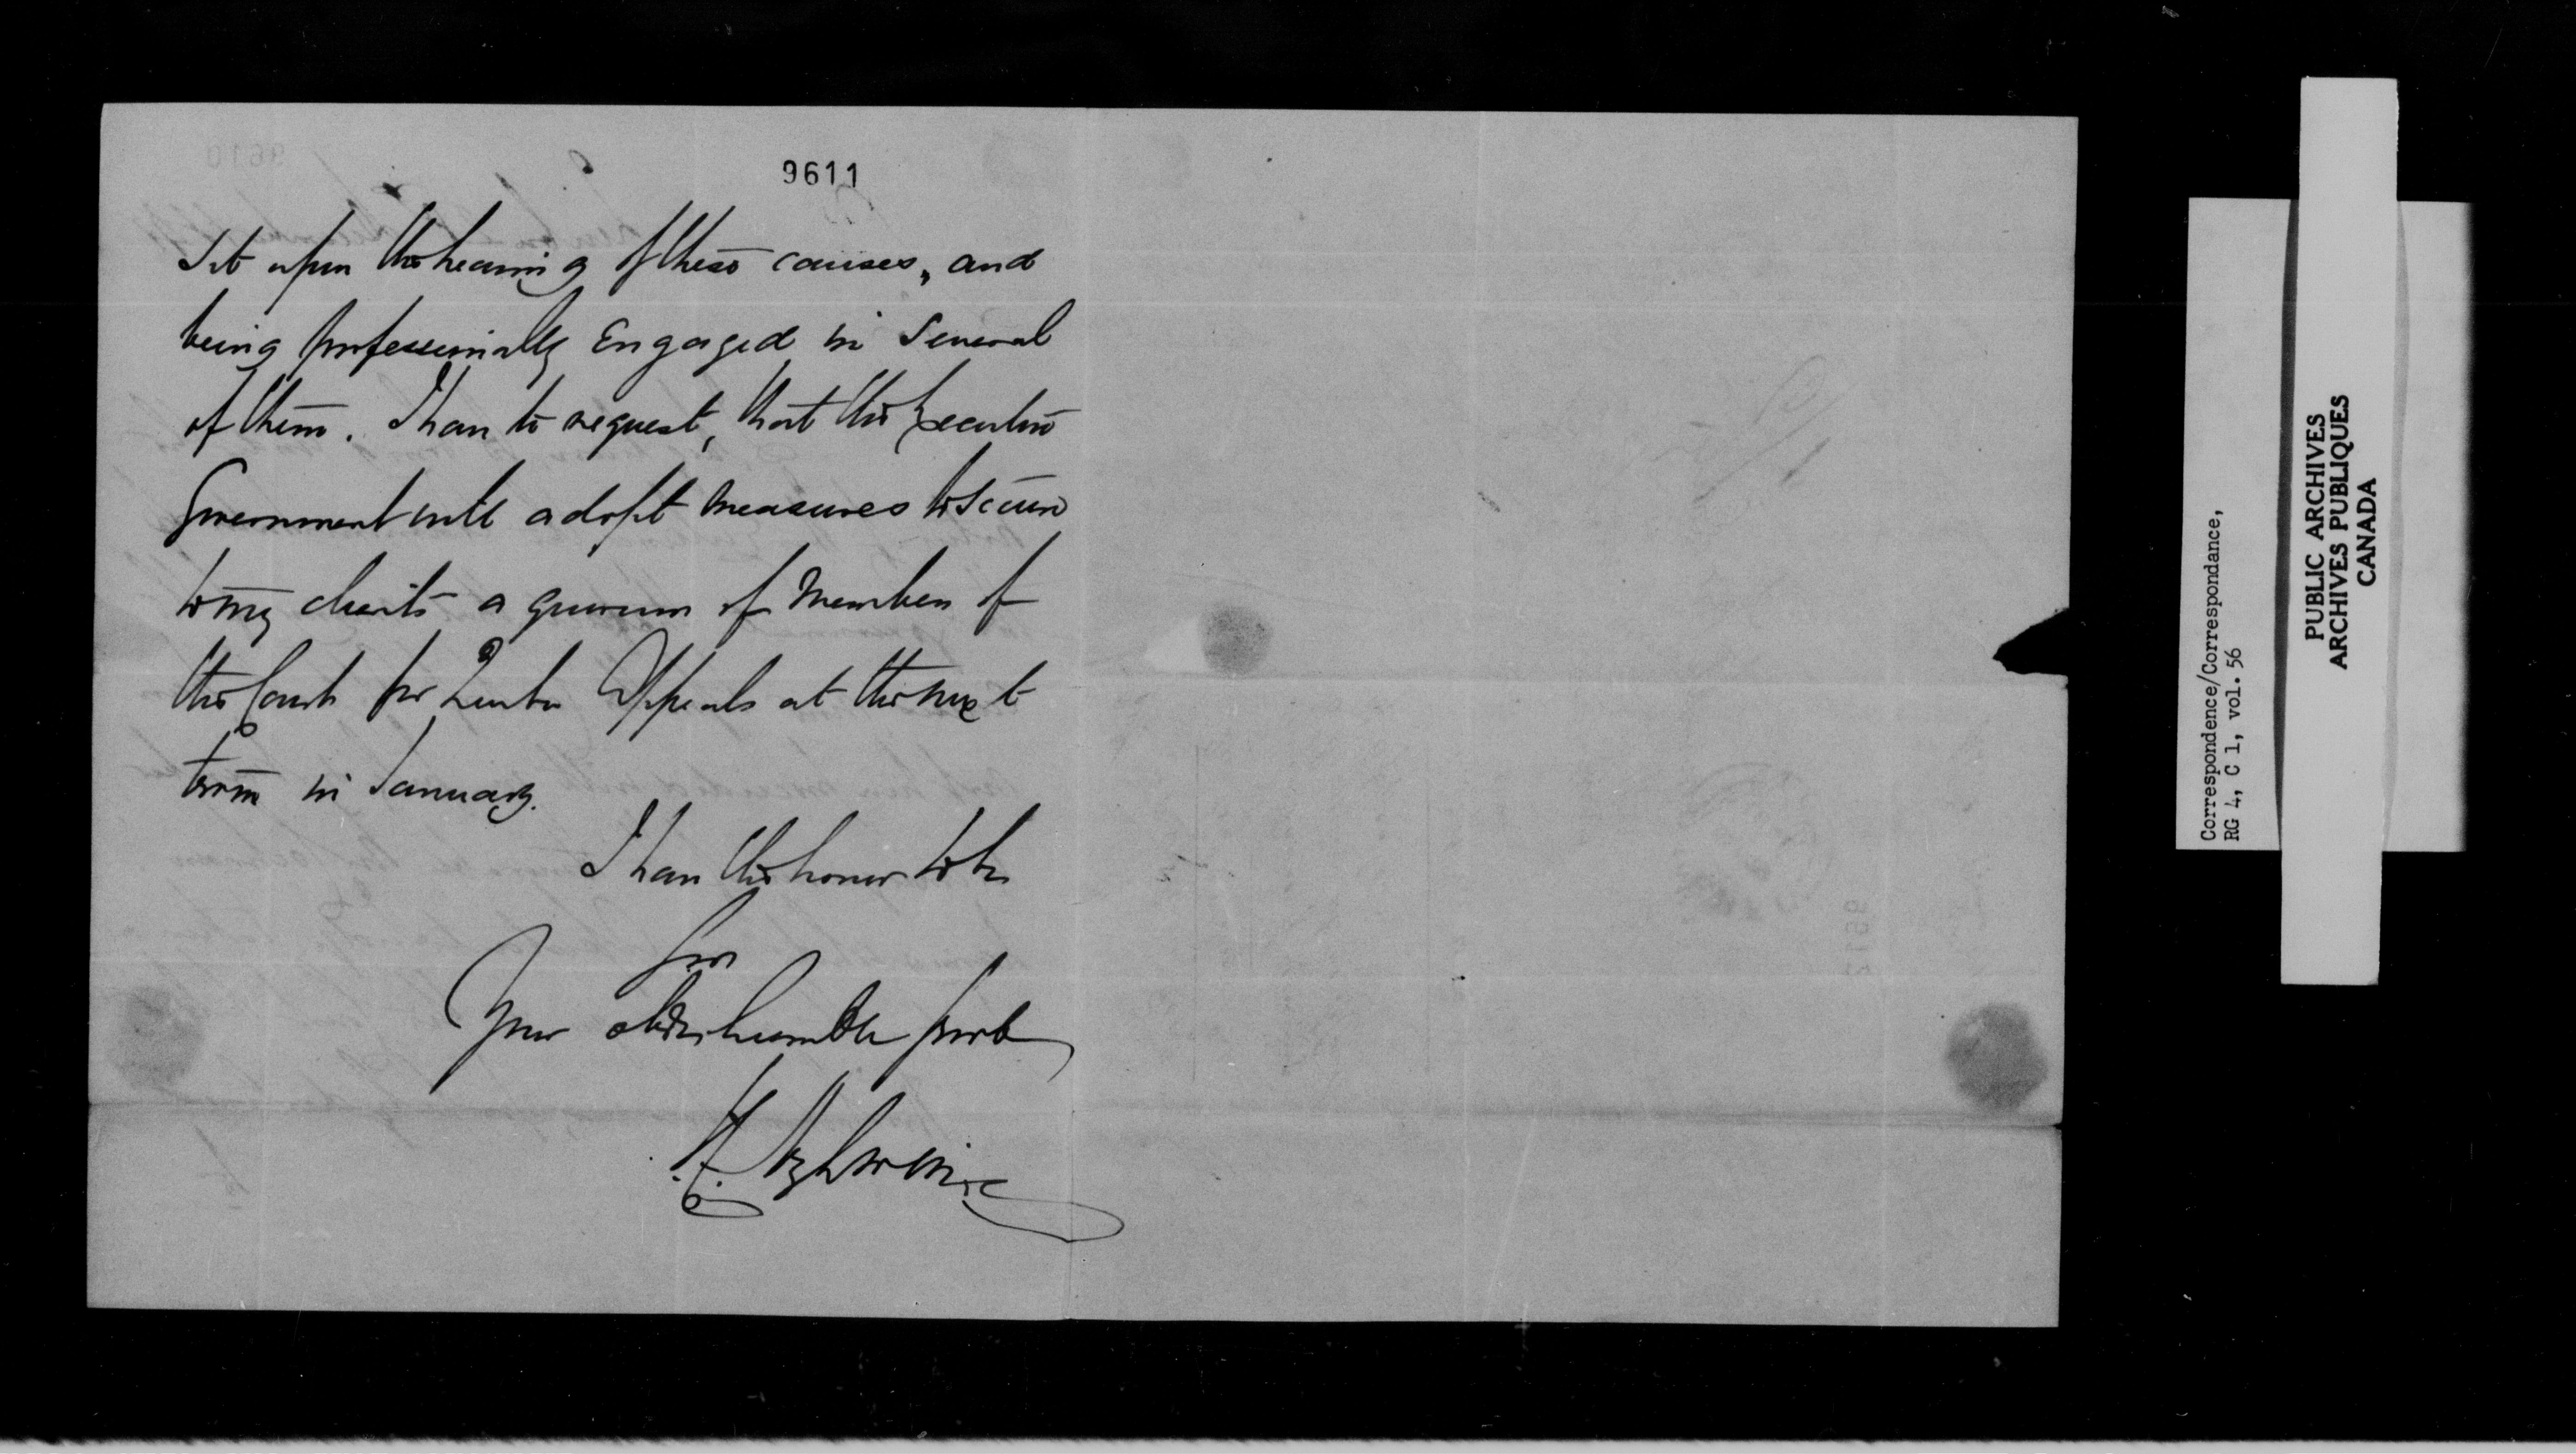 9611
Sit upon the hearing of these causes, and
being professionally Engaged in Several
of them. I have to request, that the Executive
Government will adopt measures to secure
to my clients a quorum of Members of
the Court for Quebec Appeals at the next
term in January.
I have the honor to be
Sir
Your obdt. humble Servt
Correspondence/Correspondance,
RG 4, C 1, vol. 56
PUBLIC ARCHIVES
ARCHIVES PUBLIQUES
CANADA